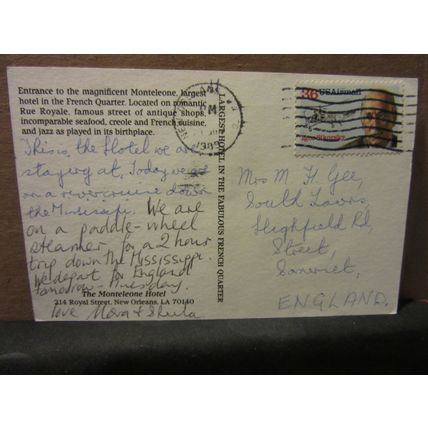 Entrance to the magnificent Monteleone, largest
hotel in the French Quarter. Located on romantic
Rue Royale, famous street of antique shops,
incomparable seafood, creole and French cuisine,
and jazz as played in its birthplace.
This is the Hotel we are
staying at, Today we go
on a river cruise down
the Mississipi. We are
on a paddle-wheel
steamer, for a 2 hour
trip down the Mississippi
We depart for England
tomorrow - Tuesday.
The Monteleone Hotel
214 Royal Street, New Orleans, LA 70140
love & Sheila
LARGEST HOTEL IN THE FABULOUS FRENCH QUARTER
PM
1989
36 USAirmail
Igor Sikorsky
Mrs M. H. Gee,
South Lawns,
Highfield Rd,
Street,
Somerset,
ENGLAND.